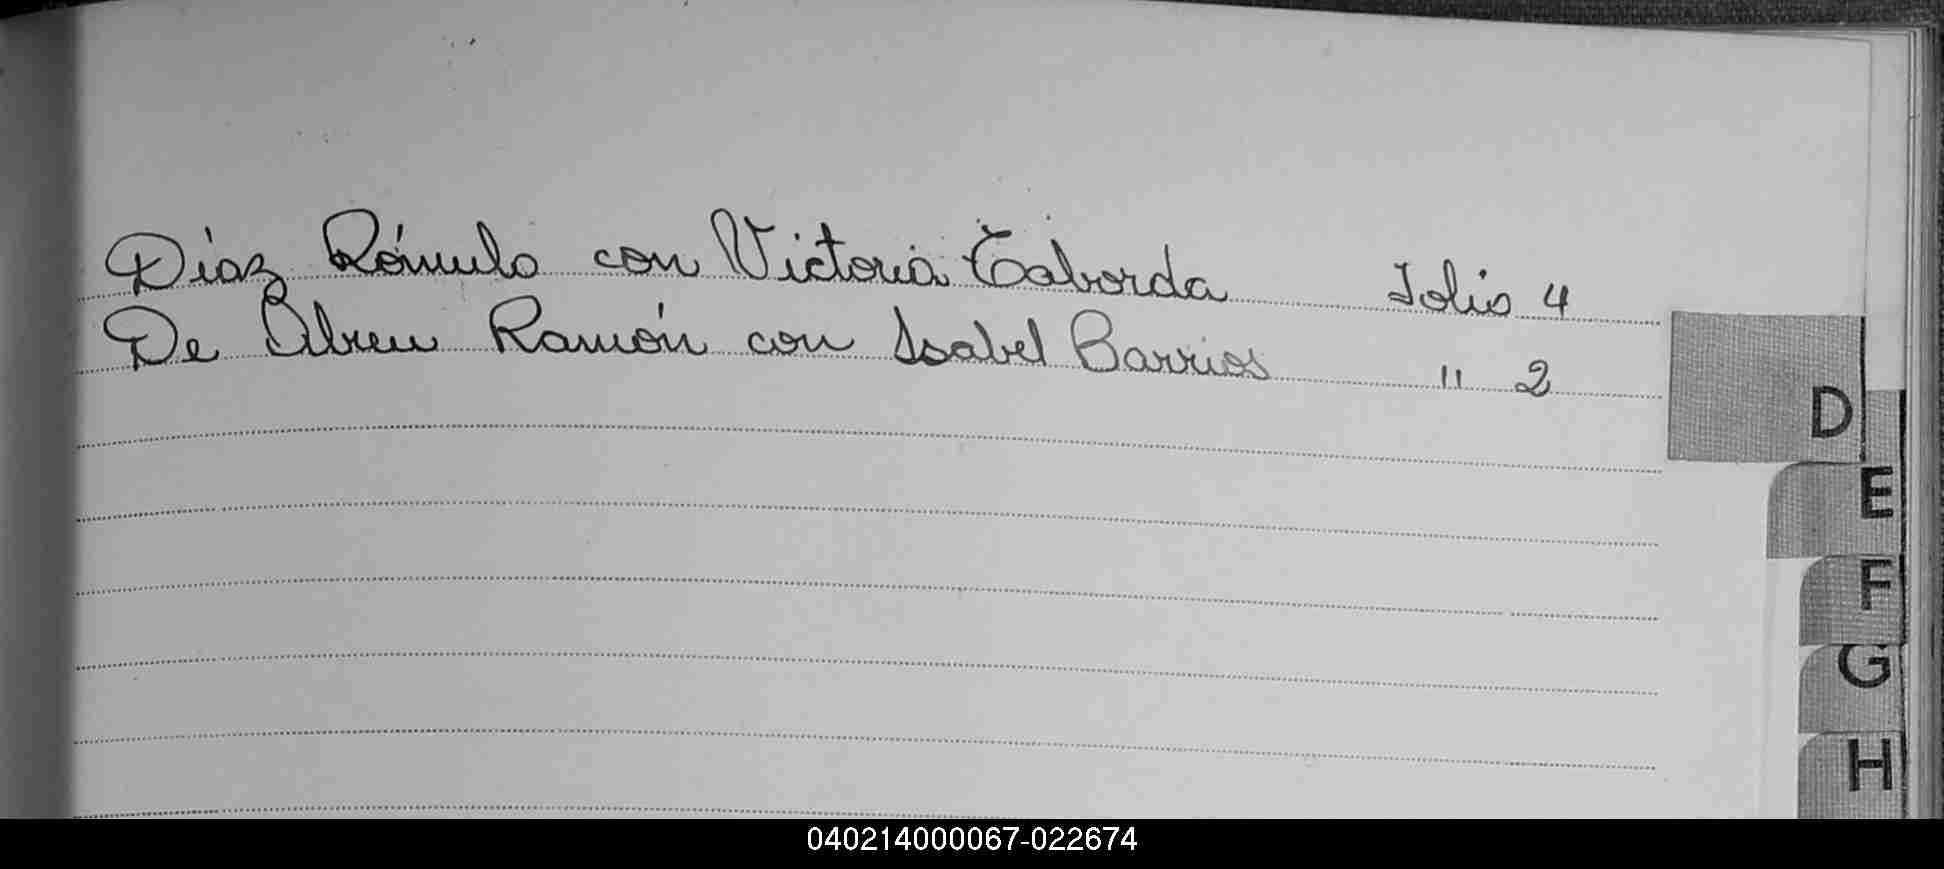 Díaz Rómulo con Victoria Taborda Folio 4
De Abreu Ramón con Isabel Barrios " 2
D
E
F
G
H
040214000067-022674